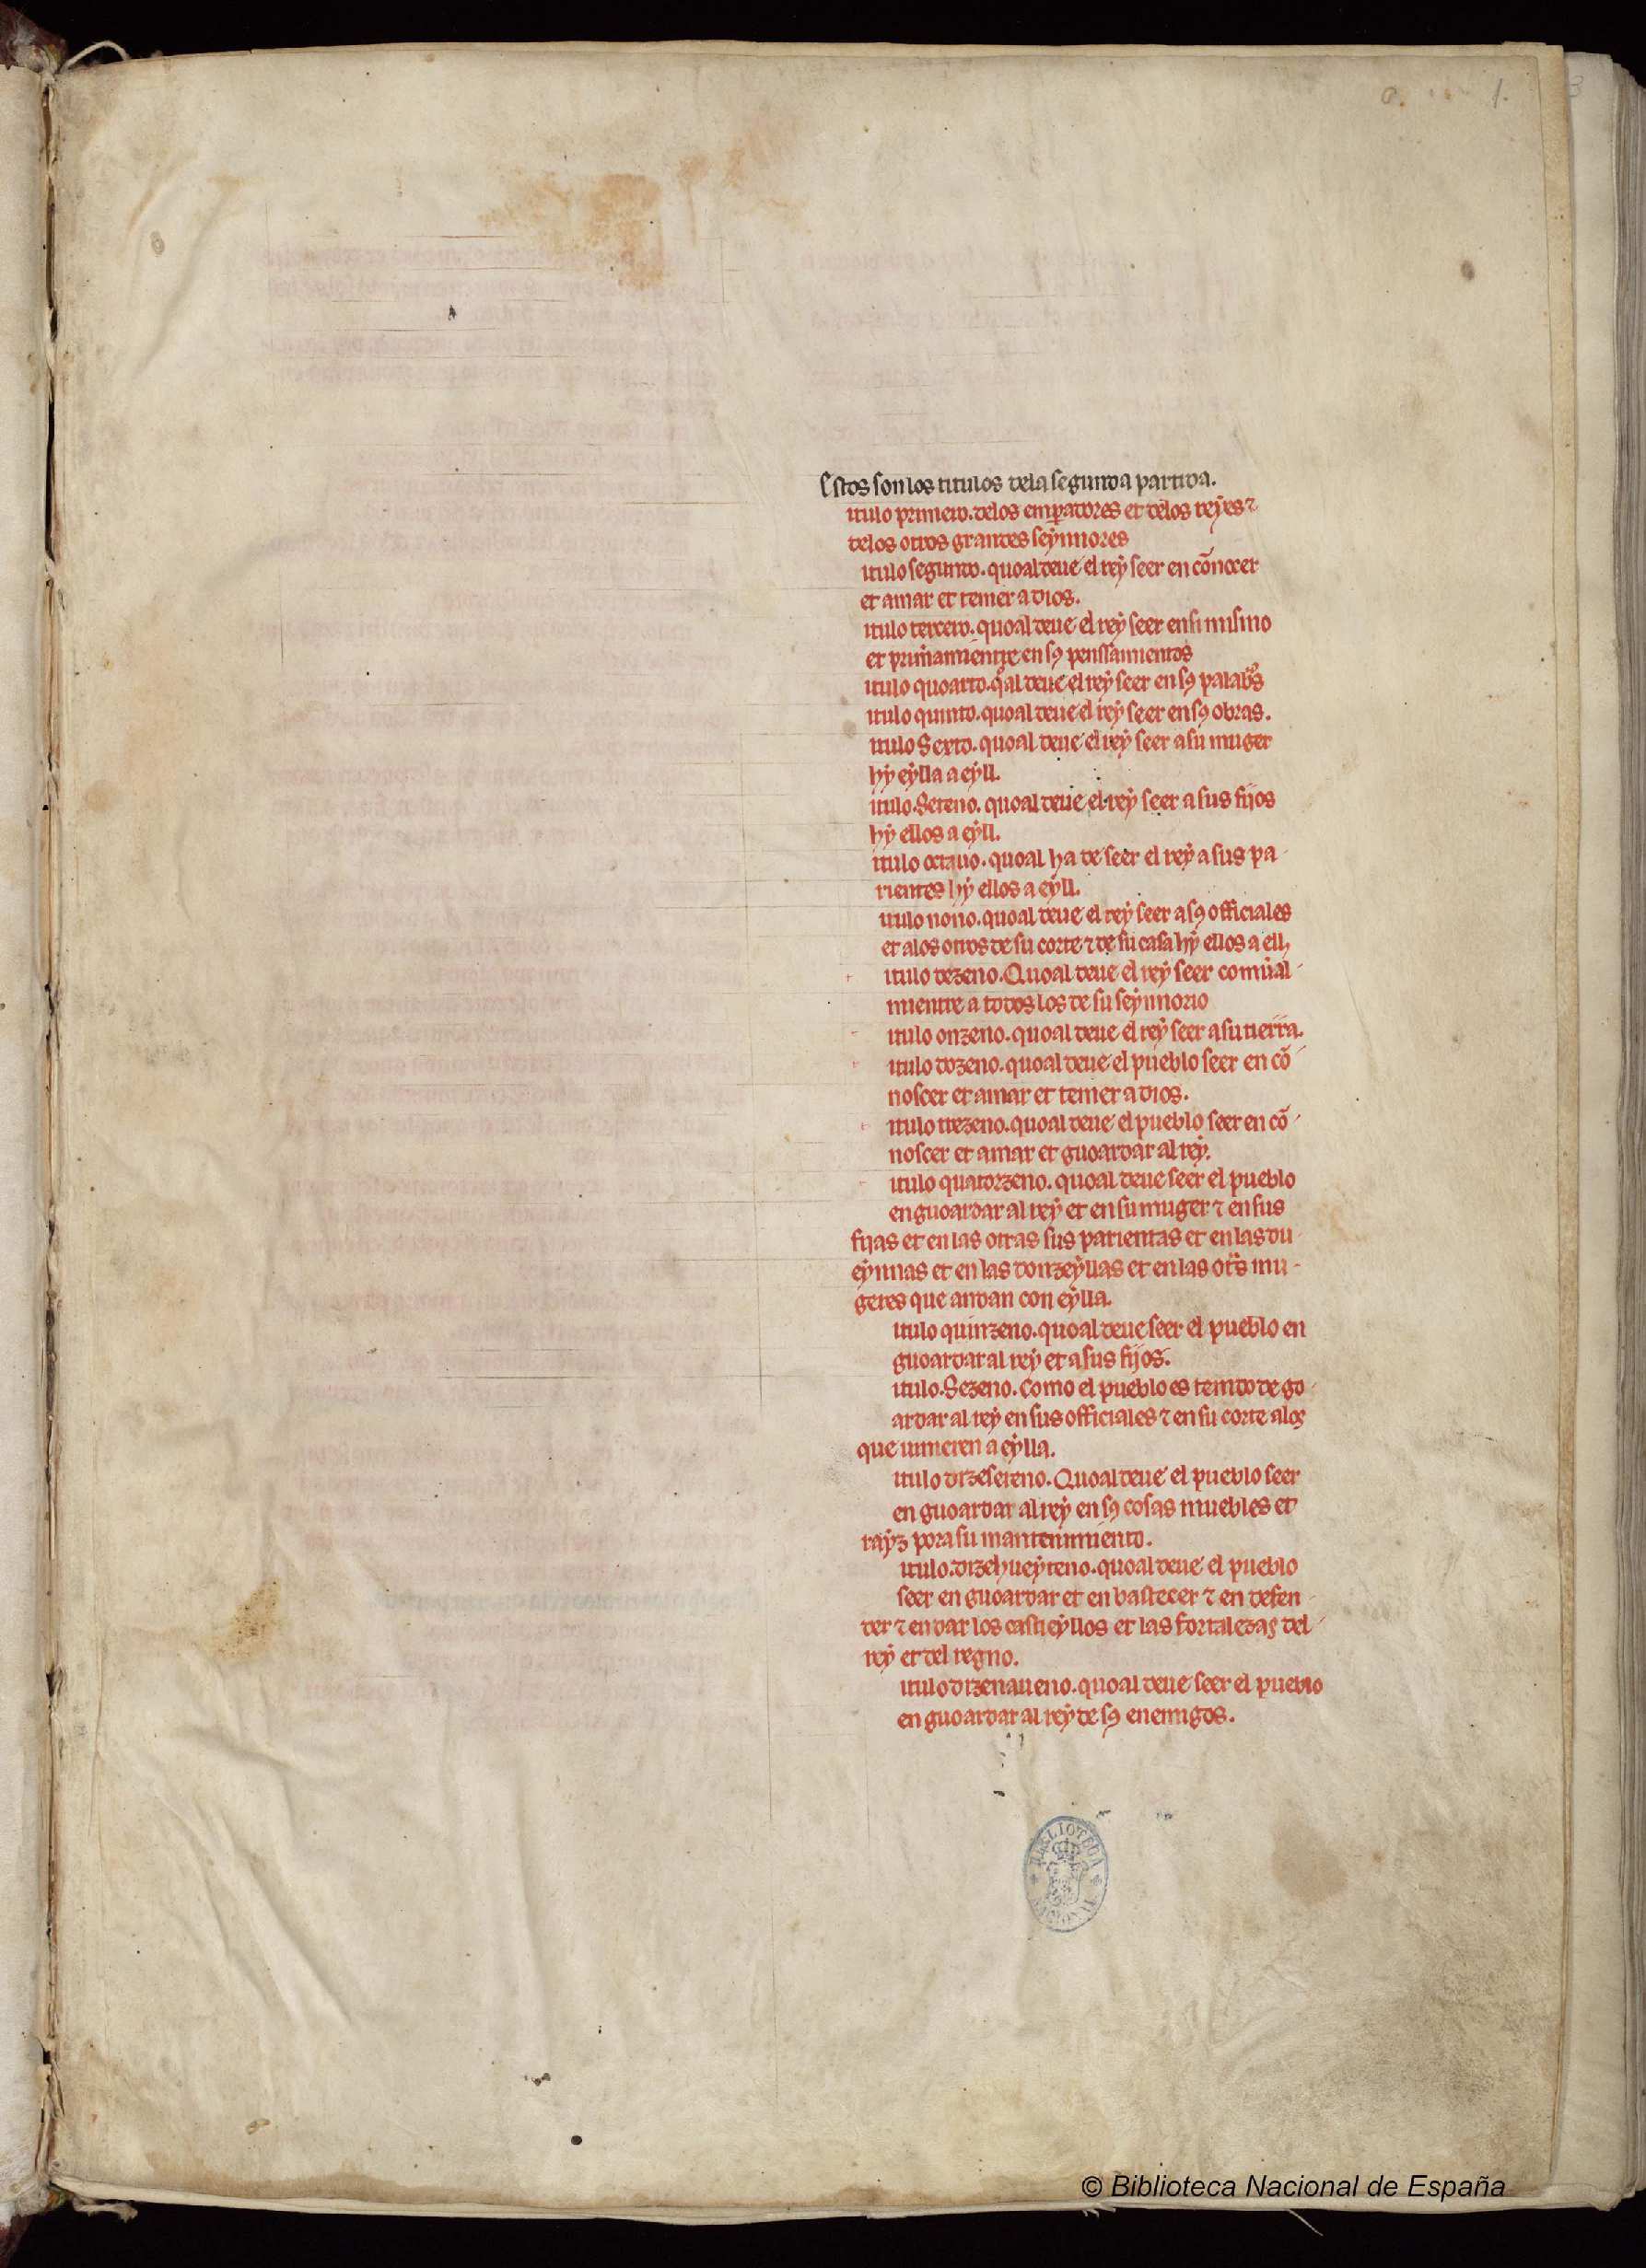 1.
Estos son los titulos dela segunda partida.
itulo primero. delos emꝑadores et delos reẏes ⁊
delos otros grandes seẏnnores
itulo segundo. quoal deue el reẏ seer en cõnocer
et amar et temer a dios.
itulo tercero. quoal deue el reẏ seer en si mismo
et prim̃amientre en sꝯ penssamientos
itulo quoarto. qͣal deue el reẏ seer en sꝯ palabͣs
itulo quinto. quoal deue el reẏ seer en sꝯ obras.
itulo Sexto. quoal deue el reẏ seer a su muger
hẏ eẏlla a eẏll.
itulo. Seteno. quoal deue el reẏ seer a sus fijos
hẏ ellos a eẏll.
itulo octauo. quoal ha de seer el reẏ a sus pa
rientes hẏ ellos a eẏll.
itulo nono. quoal deue el reẏ seer a sꝯ officiales
et alos otros de su corte ⁊ de su casa hẏ ellos a ell,
itulo dezeno. Quoal deue el reẏ seer comũal
mientre a todos los de su seẏnnorio
itulo onzeno. quoal deue el reẏ seer a su tierra.
itulo dozeno. quoal deue el pueblo seer en cõ
noscer et amar et temer a dios.
itulo trezeno. quoal deue el pueblo seer en cõ
noscer et amar et guoardar al reẏ.
itulo quatorzeno. quoal deue seer el pueblo
en guoardar al reẏ et en su muger ⁊ en sus
fijas et en las otras sus parientas et en las du
eẏnnas et en las donzeẏllas et en las otͣs mu
geres que andan con eẏlla.
itulo quinzeno. quoal deue seer el pueblo en
guoardar al reẏ et a sus fijos.
itulo. Sezeno. Como el pueblo es temido de go
ardar al reẏ en sus officiales ⁊ en su corte alos
que uinieren a eẏlla.
itulo dizeseteno. Quoal deue el pueblo seer
en guoardar al reẏ en sꝯ cosas muebles et
raẏz pora su mantenimiento.
itulo. dizehueẏteno. quoal deue el pueblo
seer en guoardar et en bastecer ⁊ en defen
der ⁊ en dar los castieẏllos et las fortalezas del
reẏ et del regno.
itulo dizenaueno. quoal deue seer el pueblo
en guoardar al reẏ de sꝯ enemigos.
BIBLIOTECA NACIONAL
© Biblioteca Nacional de España